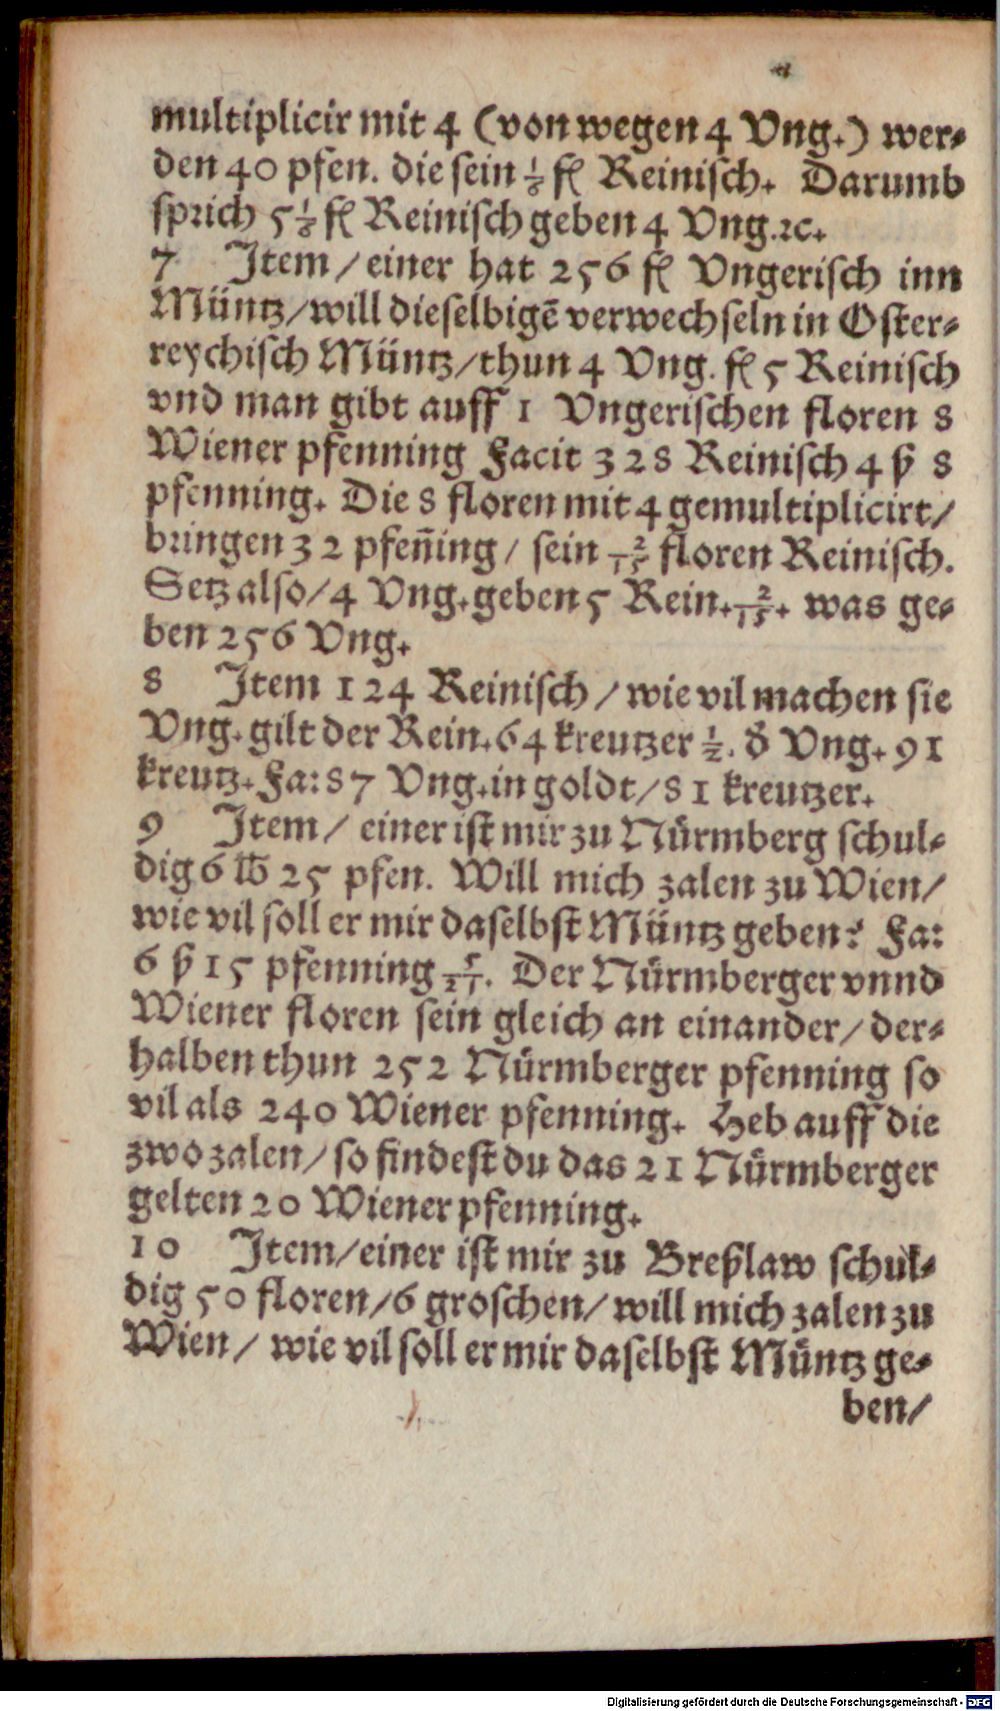 multiplicir mit 4 (von wegen 4 Vng.) wer⸗
den 40 pfen. die sein 1/6 fl Reinisch. Darumb
sprich 5 1/6 fl Reinisch geben 4 Vng. ꝛc.
7 Item / einer hat 256 fl Vngerisch inn
Müntz / will dieselbigē verwechseln in Oster⸗
reychisch Müntz / thun 4 Vng. fl 5 Reinisch
vnd man gibt auff 1 Vngerischen floren 8
Wiener pfenning Facit 328 Reinisch 4 ß 8
pfenning. Die 8 floren mit 4 gemultiplicirt /
bringen 32 pfen̄ing / sein 2/15 floren Reinisch.
Setz also / 4 Vng. geben 5 Rein. 2/15. was ge⸗
ben 256 Vng.
8 Item 124 Reinisch / wie vil machen sie
Vng. gilt der Rein. 64 kreutzer 1/2. d̄ Vng. 91
kreutz. Fa: 87 Vng. in goldt / 81 kreutzer.
9 Item / einer ist mir zu Nürmberg schul⸗
dig 6 ℔ 25 pfen. Will mich zalen zu Wien /
wie vil soll er mir daselbst Müntz geben? Fa:
6 ß 15 pfenning 5/21. Der Nürmberger vnnd
Wiener floren sein gleich an einander / der⸗
halben thun 252 Nürmberger pfenning so
vil als 240 Wiener pfenning. Heb auff die
zwo zalen / so findest du das 21 Nürmberger
gelten 20 Wiener pfenning.
10 Item / einer ist mir zu Breßlaw schul⸗
dig 50 floren / 6 groschen / will mich zalen zu
Wien / wie vil soll er mir daselbst Müntz ge⸗
ben /
Digitalisierung gefördert durch die Deutsche Forschungsgemeinschaft - DFG